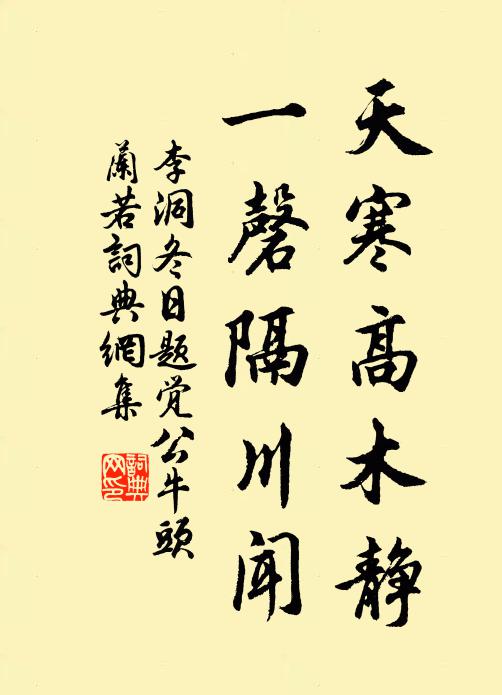 天寒高木静
一磬隔川闻
李洞冬日题觉公牛頭
蘭若詞典網集
詞典网印